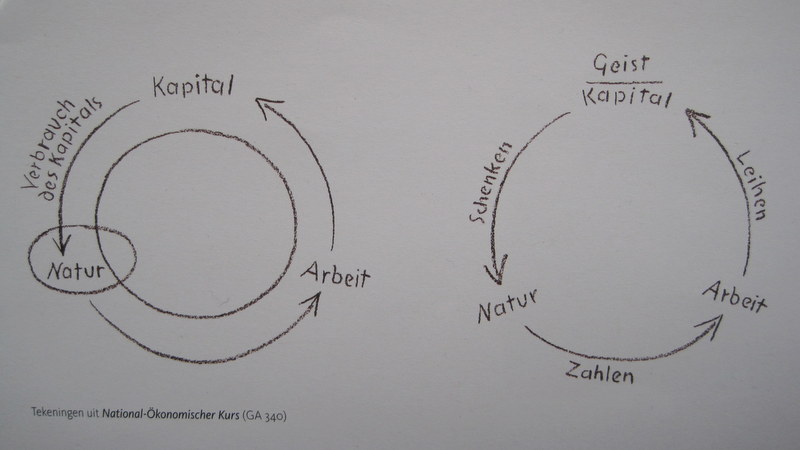 Kapital
Verbrauch
des Kapitals
Natur
Arbeit
Geist
Kapital
Schenken
Leihen
Natur
Arbeit
Zahlen
Tekeningen uit National-Ökonomischer Kurs (GA 340)